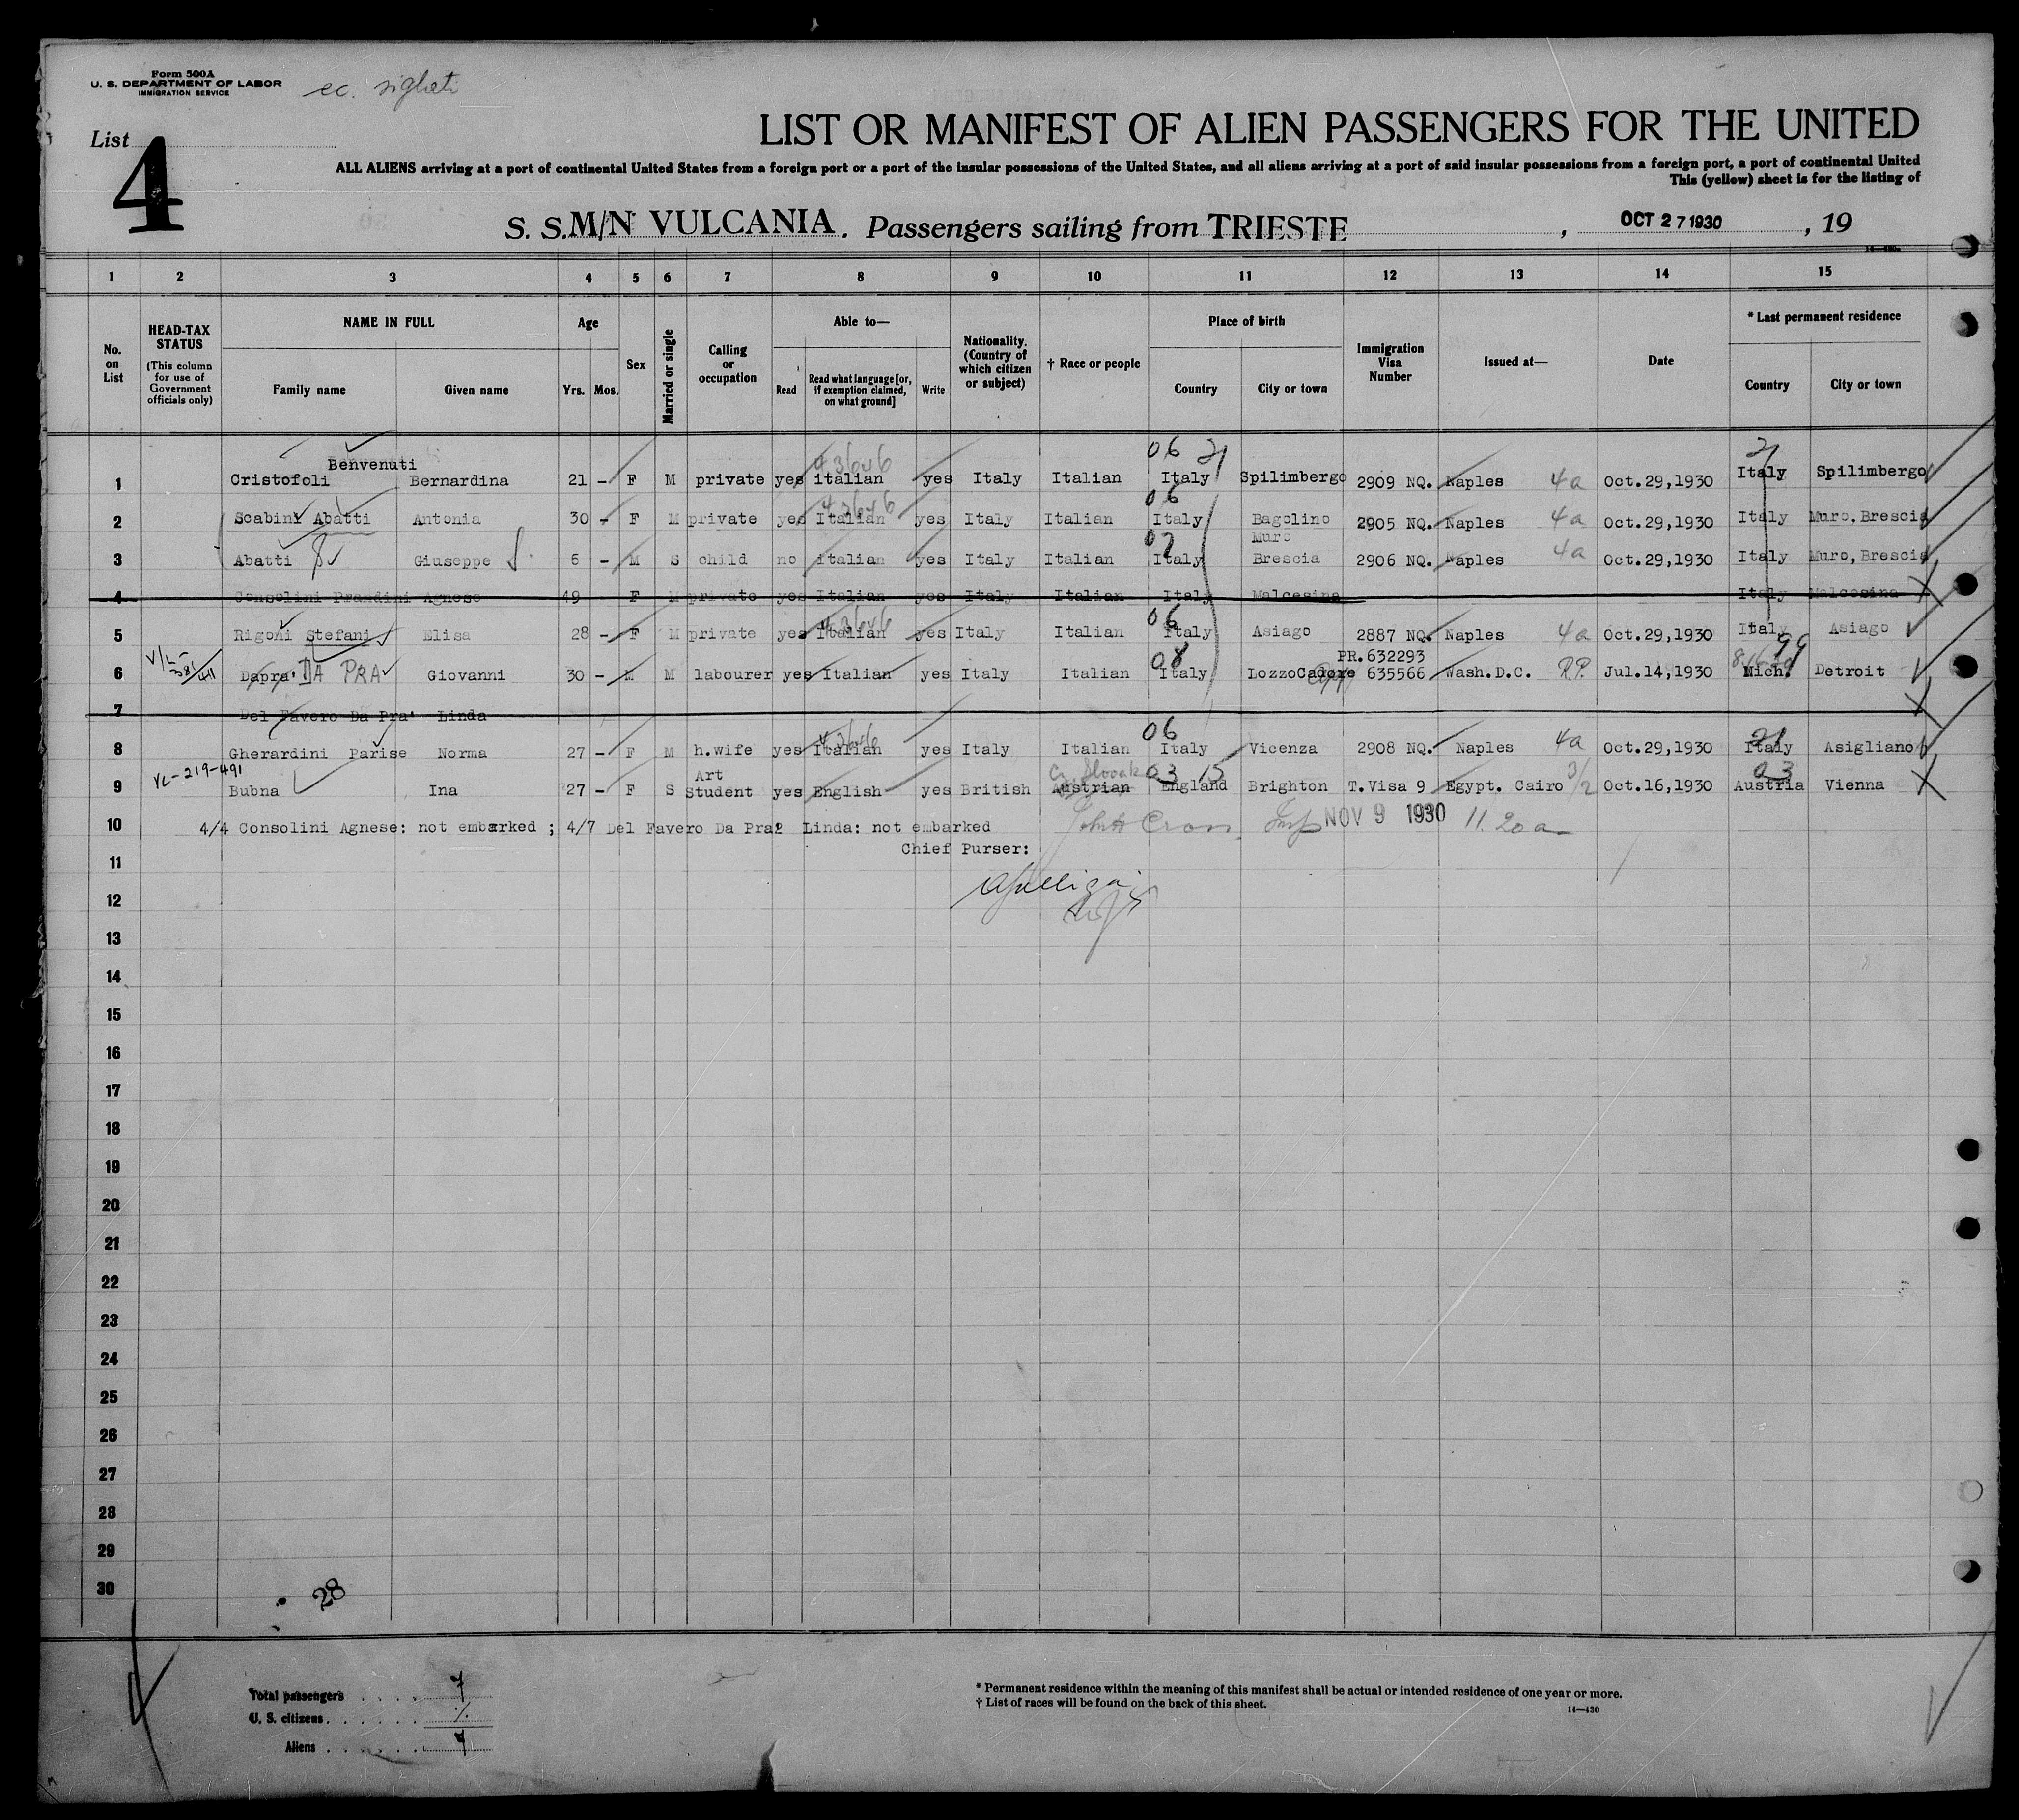 Form 500A
U. S. DEPARTMENT OF LABOR
IMMIGRATION SERVICE
List
4
LIST OR MANIFEST OF ALIEN PASSENGERS FOR THE UNITED
ALL ALIENS arriving at a port of continental United States from a foreign port or a port of the insular possessions of the United States, and all aliens arriving at a port of said insular possessions from a foreign port, a port of continental United
This (yellow) sheet is for the listing of
S. S. M/N VULCANIA. Passengers sailing from TRIESTE, OCT 27 1930, 19
1 2 3 4 5 6 7 8 9 10 11 12 13 14 15
No. on List
HEAD-TAX STATUS
(This column for use of Government officials only)
NAME IN FULL
Family name Given name
Age
Yrs. Mos.
Sex
Married or single
Calling or occupation
Able to—
Read
Read what language [or, if exemption claimed, on what ground]
Write
Nationality. (Country of which citizen or subject)
† Race or people
Place of birth
Country City or town
Immigration Visa Number
Issued at—
Date
* Last permanent residence
Country City or town
06 21 21
Benvenuti
1 Cristofoli Bernardina 21 - F M private yes italian yes Italy Italian Italy Spilimbergo 2909 NQ. Naples 4a Oct.29,1930 Italy Spilimbergo
06
2 Scabini Abatti Antonia 30 - F M private yes Italian yes Italy Italian Italy Bagolino 2905 NQ. Naples 4a Oct.29,1930 Italy Muro,Brescia
07 Muro
3 Abatti Giuseppe 6 - M S child no italian yes Italy Italian Italy Brescia 2906 NQ. Naples 4a Oct.29,1930 Italy Muro,Brescia
4 Consolini Prandini Agnese 49 F M private yes Italian yes Italy Italian Italy Malcesina Italy Malcesina
06
5 Rigoni Stefani Elisa 28 - F M private yes Italian yes Italy Italian Italy Asiago 2887 NQ. Naples 4a Oct.29,1930 Italy Asiago
08 PR.632293 99
6 Dapra' DA PRA Giovanni 30 - M M labourer yes Italian yes Italy Italian Italy LozzoCadore 635566 Wash.D.C. R.P. Jul.14,1930 Mich. Detroit
7 Del Favero Da Pra' Linda
06
8 Gherardini Parise Norma 27 - F M h.wife yes Italian yes Italy Italian Italy Vicenza 2908 NQ. Naples 4a Oct.29,1930 Italy Asigliano
VC-219-491 03 15 3/2 03
9 Bubna Ina 27 - F S Art Student yes English yes British Austrian England Brighton T.Visa 9 Egypt. Cairo Oct.16,1930 Austria Vienna
10 4/4 Consolini Agnese: not embarked ; 4/7 Del Favero Da Pra' Linda: not embarked NOV 9 1930 11.20 a
Chief Purser:
11
12
13
14
15
16
17
18
19
20
21
22
23
24
25
26
27
28
29
30
28
Total passengers . . . . 7
U. S. citizens . . . . . .
Aliens . . . . . . 7
* Permanent residence within the meaning of this manifest shall be actual or intended residence of one year or more.
† List of races will be found on the back of this sheet.
14—430